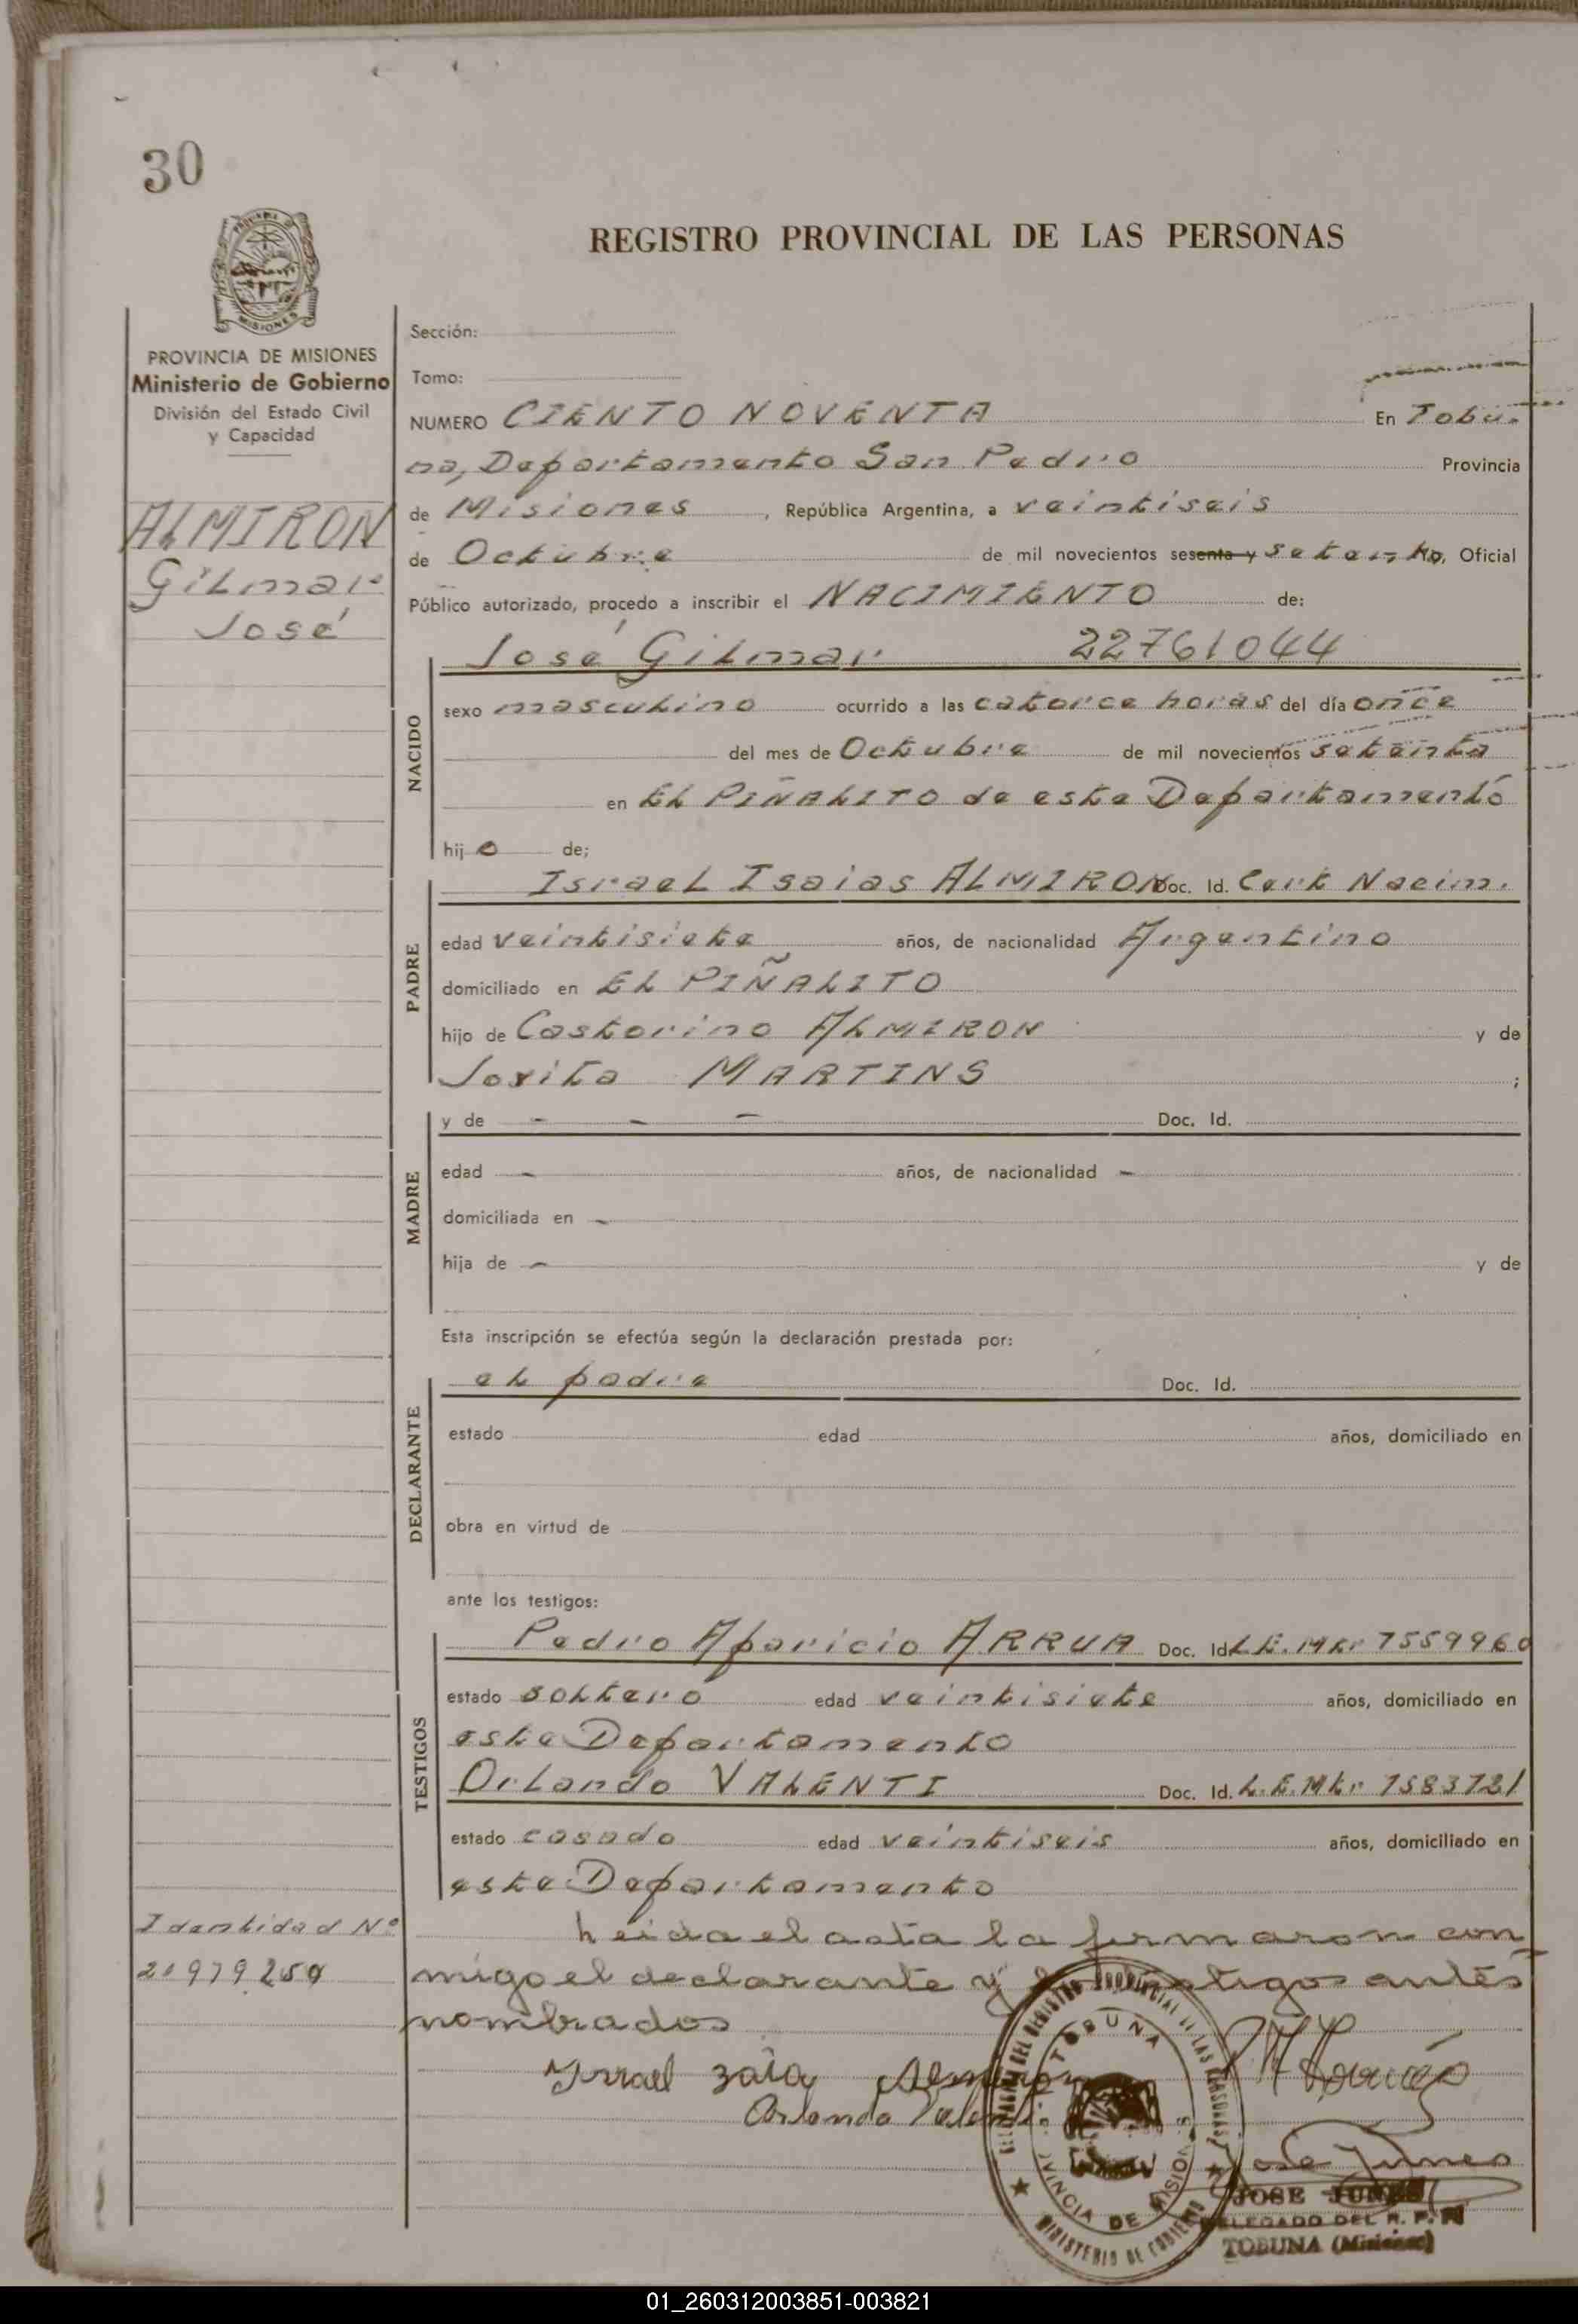 30
PROVINCIA DE MISIONES
Ministerio de Gobierno
División del Estado Civil
y Capacidad
ALMIRON
Gilmar
José
REGISTRO PROVINCIAL DE LAS PERSONAS
Sección:
Tomo:
NUMERO CIENTO NOVENTA En Tobu-
na, Departamento San Pedro Provincia
de Misiones, República Argentina, a veintiseis
de Octubre de mil novecientos sesenta y setenta, Oficial
Público autorizado, procedo a inscribir el NACIMIENTO de:
José Gilmar 22761044
NACIDO
sexo masculino ocurrido a las catorce horas del día once
del mes de Octubre de mil novecientos setenta
en EL PIÑALITO de este Departamento
hijo de;
Israel Isaias ALMIRON Doc. Id. Cert Nacim.
PADRE
edad veintisiete años, de nacionalidad Argentino
domiciliado en EL PIÑALITO
hijo de Castorino ALMIRON y de
MARTINS ;
MADRE
y de - - - Doc. Id.
edad - años, de nacionalidad -
domiciliada en -
hija de - y de
Esta inscripción se efectúa según la declaración prestada por:
el padre Doc. Id.
DECLARANTE
estado edad años, domiciliado en
obra en virtud de
ante los testigos:
Pedro Aparicio ARRUA Doc. Id. L.E. Mtr 7559960
TESTIGOS
estado soltero edad veintisiete años, domiciliado en
este Departamento
Orlando VALENTI Doc. Id. L.E. Mtr 7583721
estado casado edad veintiseis años, domiciliado en
este Departamento
Identidad Nº
Leida el acta la firmaron con
migo el declarante y testigos antes
nombrados
Israel zaia
Orlando Valenti
TOBUNA
PROVINCIA DE MISIONES
MINISTERIO DE GOBIERNO
Jose Junes
JOSE JUNES
DELEGADO DEL R. P. P.
TOBUNA (Misiones)
01_260312003851-003821